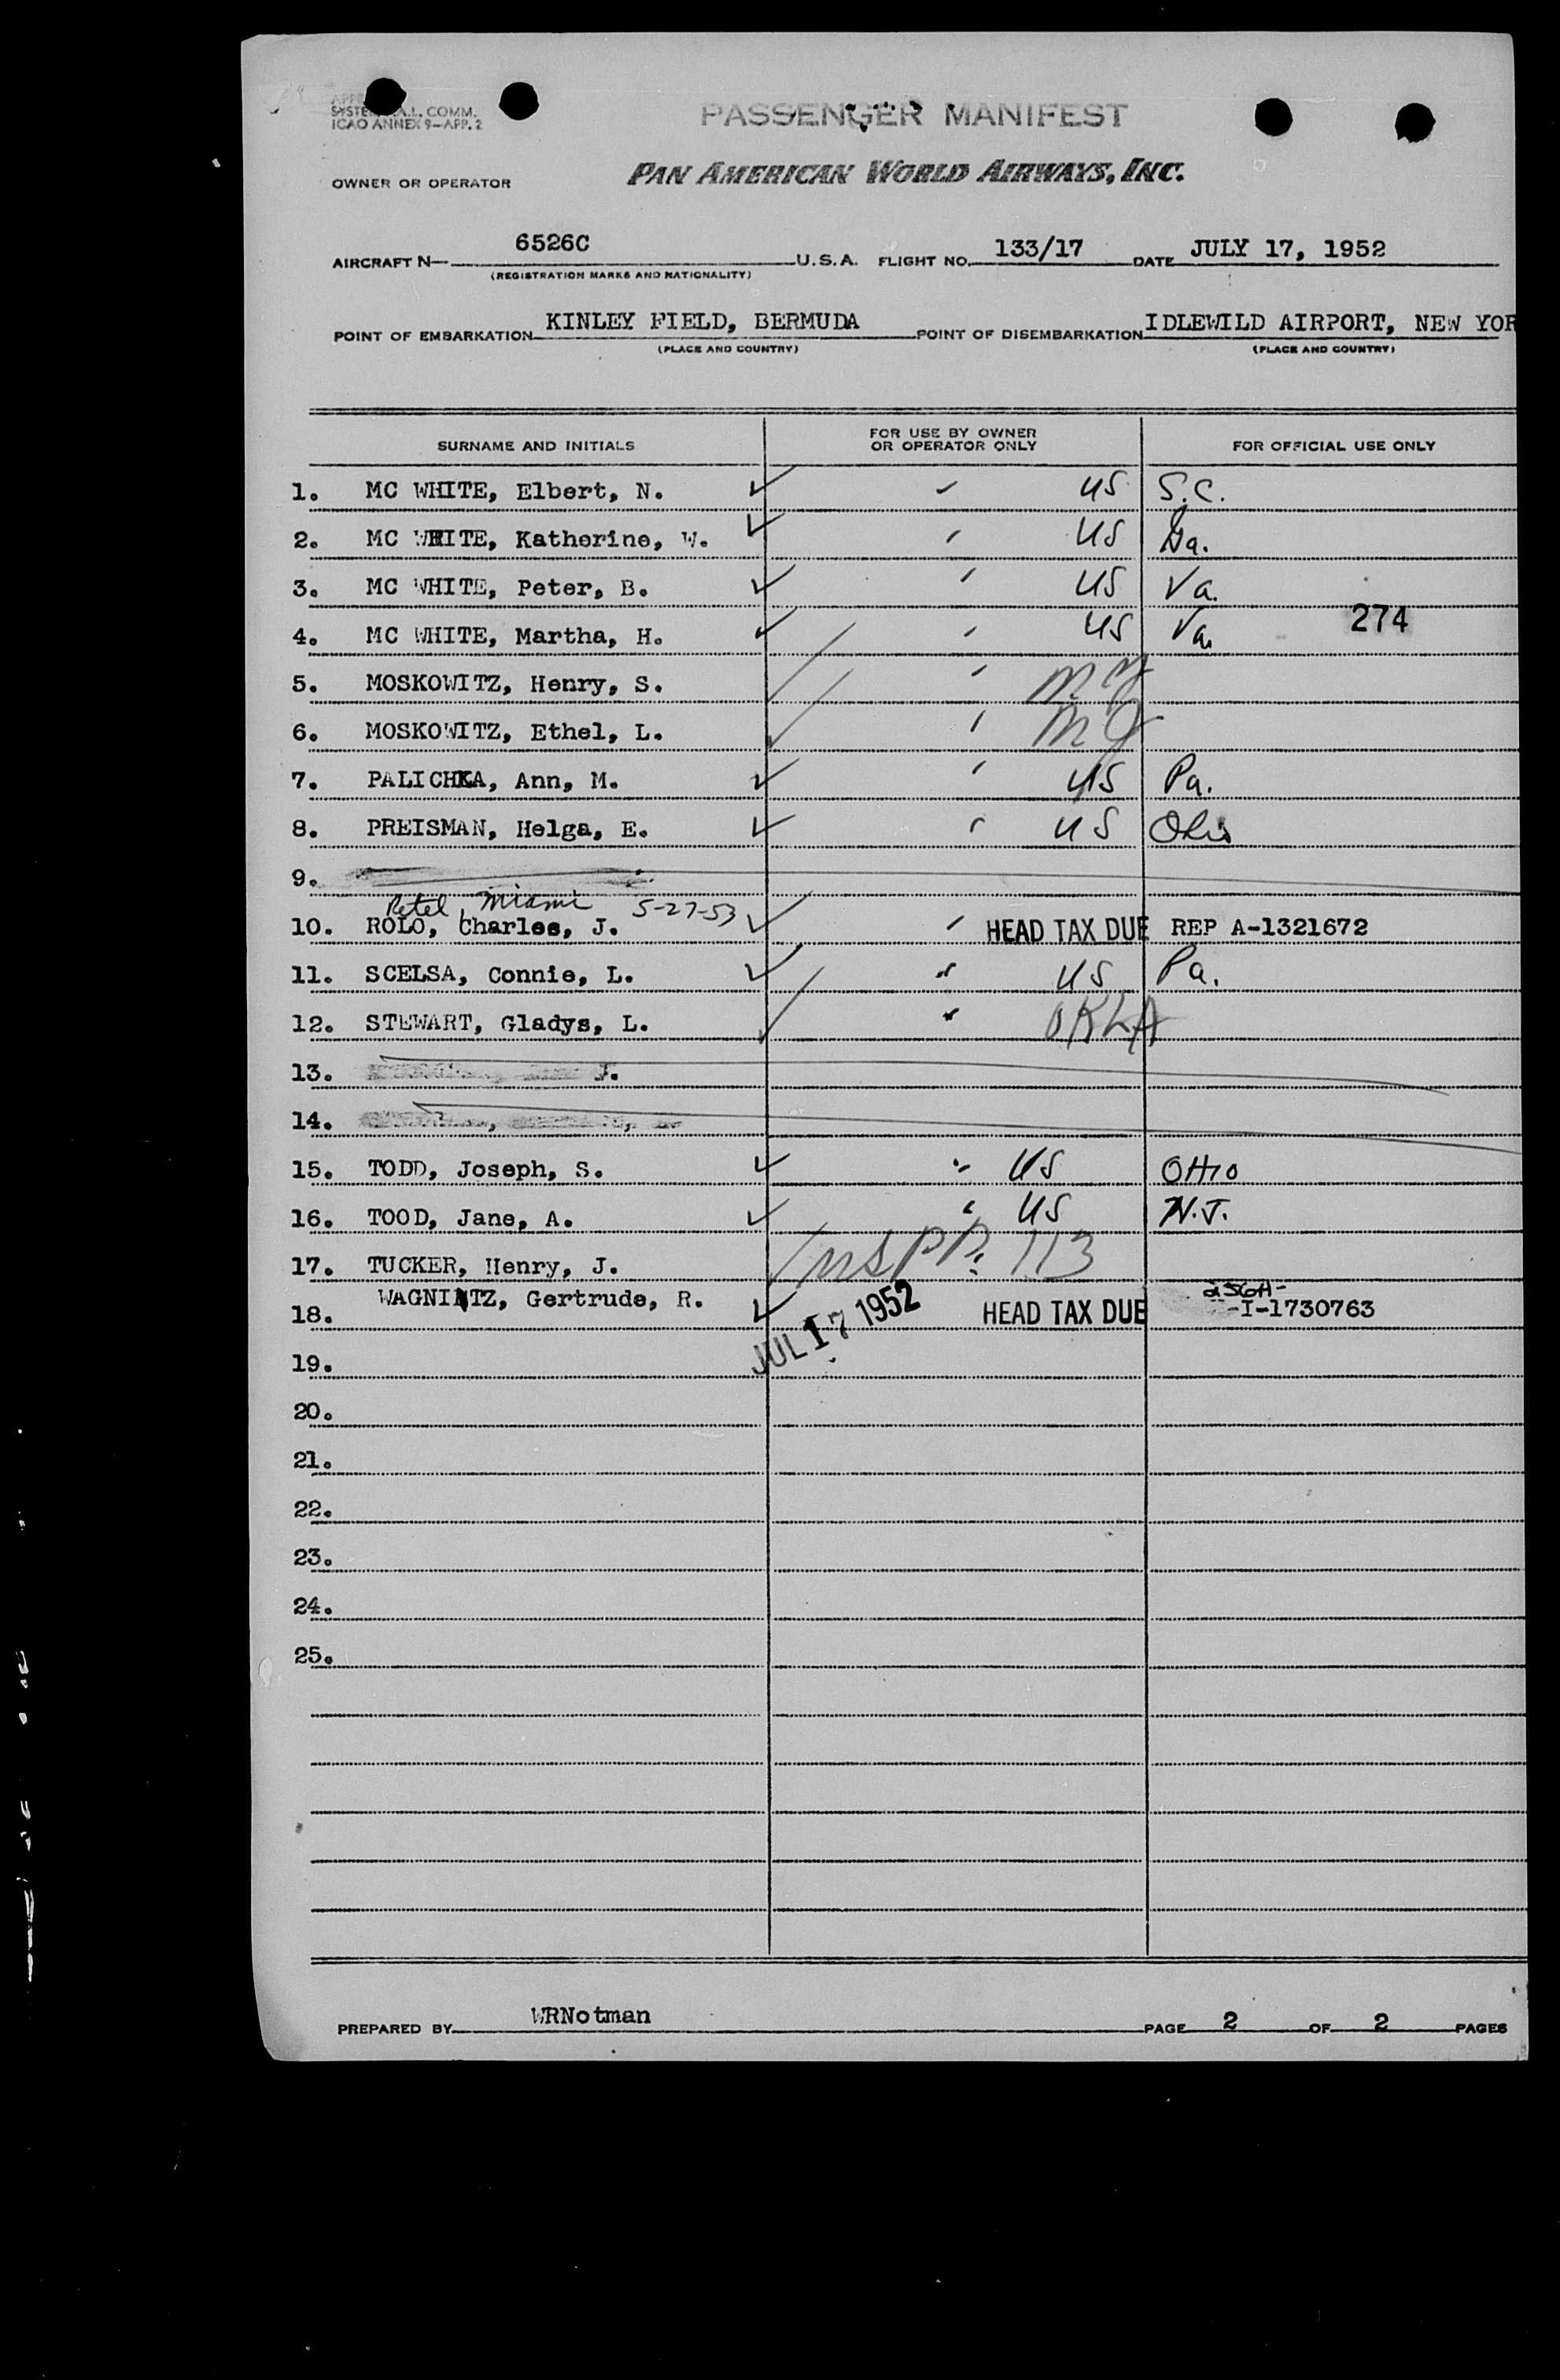 SYSTEM A.L. COMM.
ICAO ANNEX 9-APP. 2
PASSENGER MANIFEST
OWNER OR OPERATOR PAN AMERICAN WORLD AIRWAYS, INC.
AIRCRAFT N— 6526C U.S.A. FLIGHT NO. 133/17 DATE JULY 17, 1952
(REGISTRATION MARKS AND NATIONALITY)
POINT OF EMBARKATION KINLEY FIELD, BERMUDA POINT OF DISEMBARKATION IDLEWILD AIRPORT, NEW YOR
(PLACE AND COUNTRY) (PLACE AND COUNTRY)
SURNAME AND INITIALS FOR USE BY OWNER OR OPERATOR ONLY FOR OFFICIAL USE ONLY
1. MC WHITE, Elbert, N. ✓ US S.C.
2. MC WHITE, Katherine, W. ✓ US Ga.
3. MC WHITE, Peter, B. ✓ US Va.
4. MC WHITE, Martha, H. ✓ US Va. 274
5. MOSKOWITZ, Henry, S.
6. MOSKOWITZ, Ethel, L.
7. PALICHKA, Ann, M. ✓ US Pa.
8. PREISMAN, Helga, E. ✓ US Ohio
9.
Miami 5-27-53
10. ROLO, Charles, J. ✓ HEAD TAX DUE REP A-1321672
11. SCELSA, Connie, L. ✓ US Pa.
12. STEWART, Gladys, L. OKLA
13. J.
14.
15. TODD, Joseph, S. ✓ US OHIO
16. TOOD, Jane, A. ✓ US N.J.
17. TUCKER, Henry, J. INSPR. 113
18. WAGNINTZ, Gertrude, R. ✓ JUL 17 1952 HEAD TAX DUE -I-1730763
19.
20.
21.
22.
23.
24.
25.
PREPARED BY WRNotman PAGE 2 OF 2 PAGES